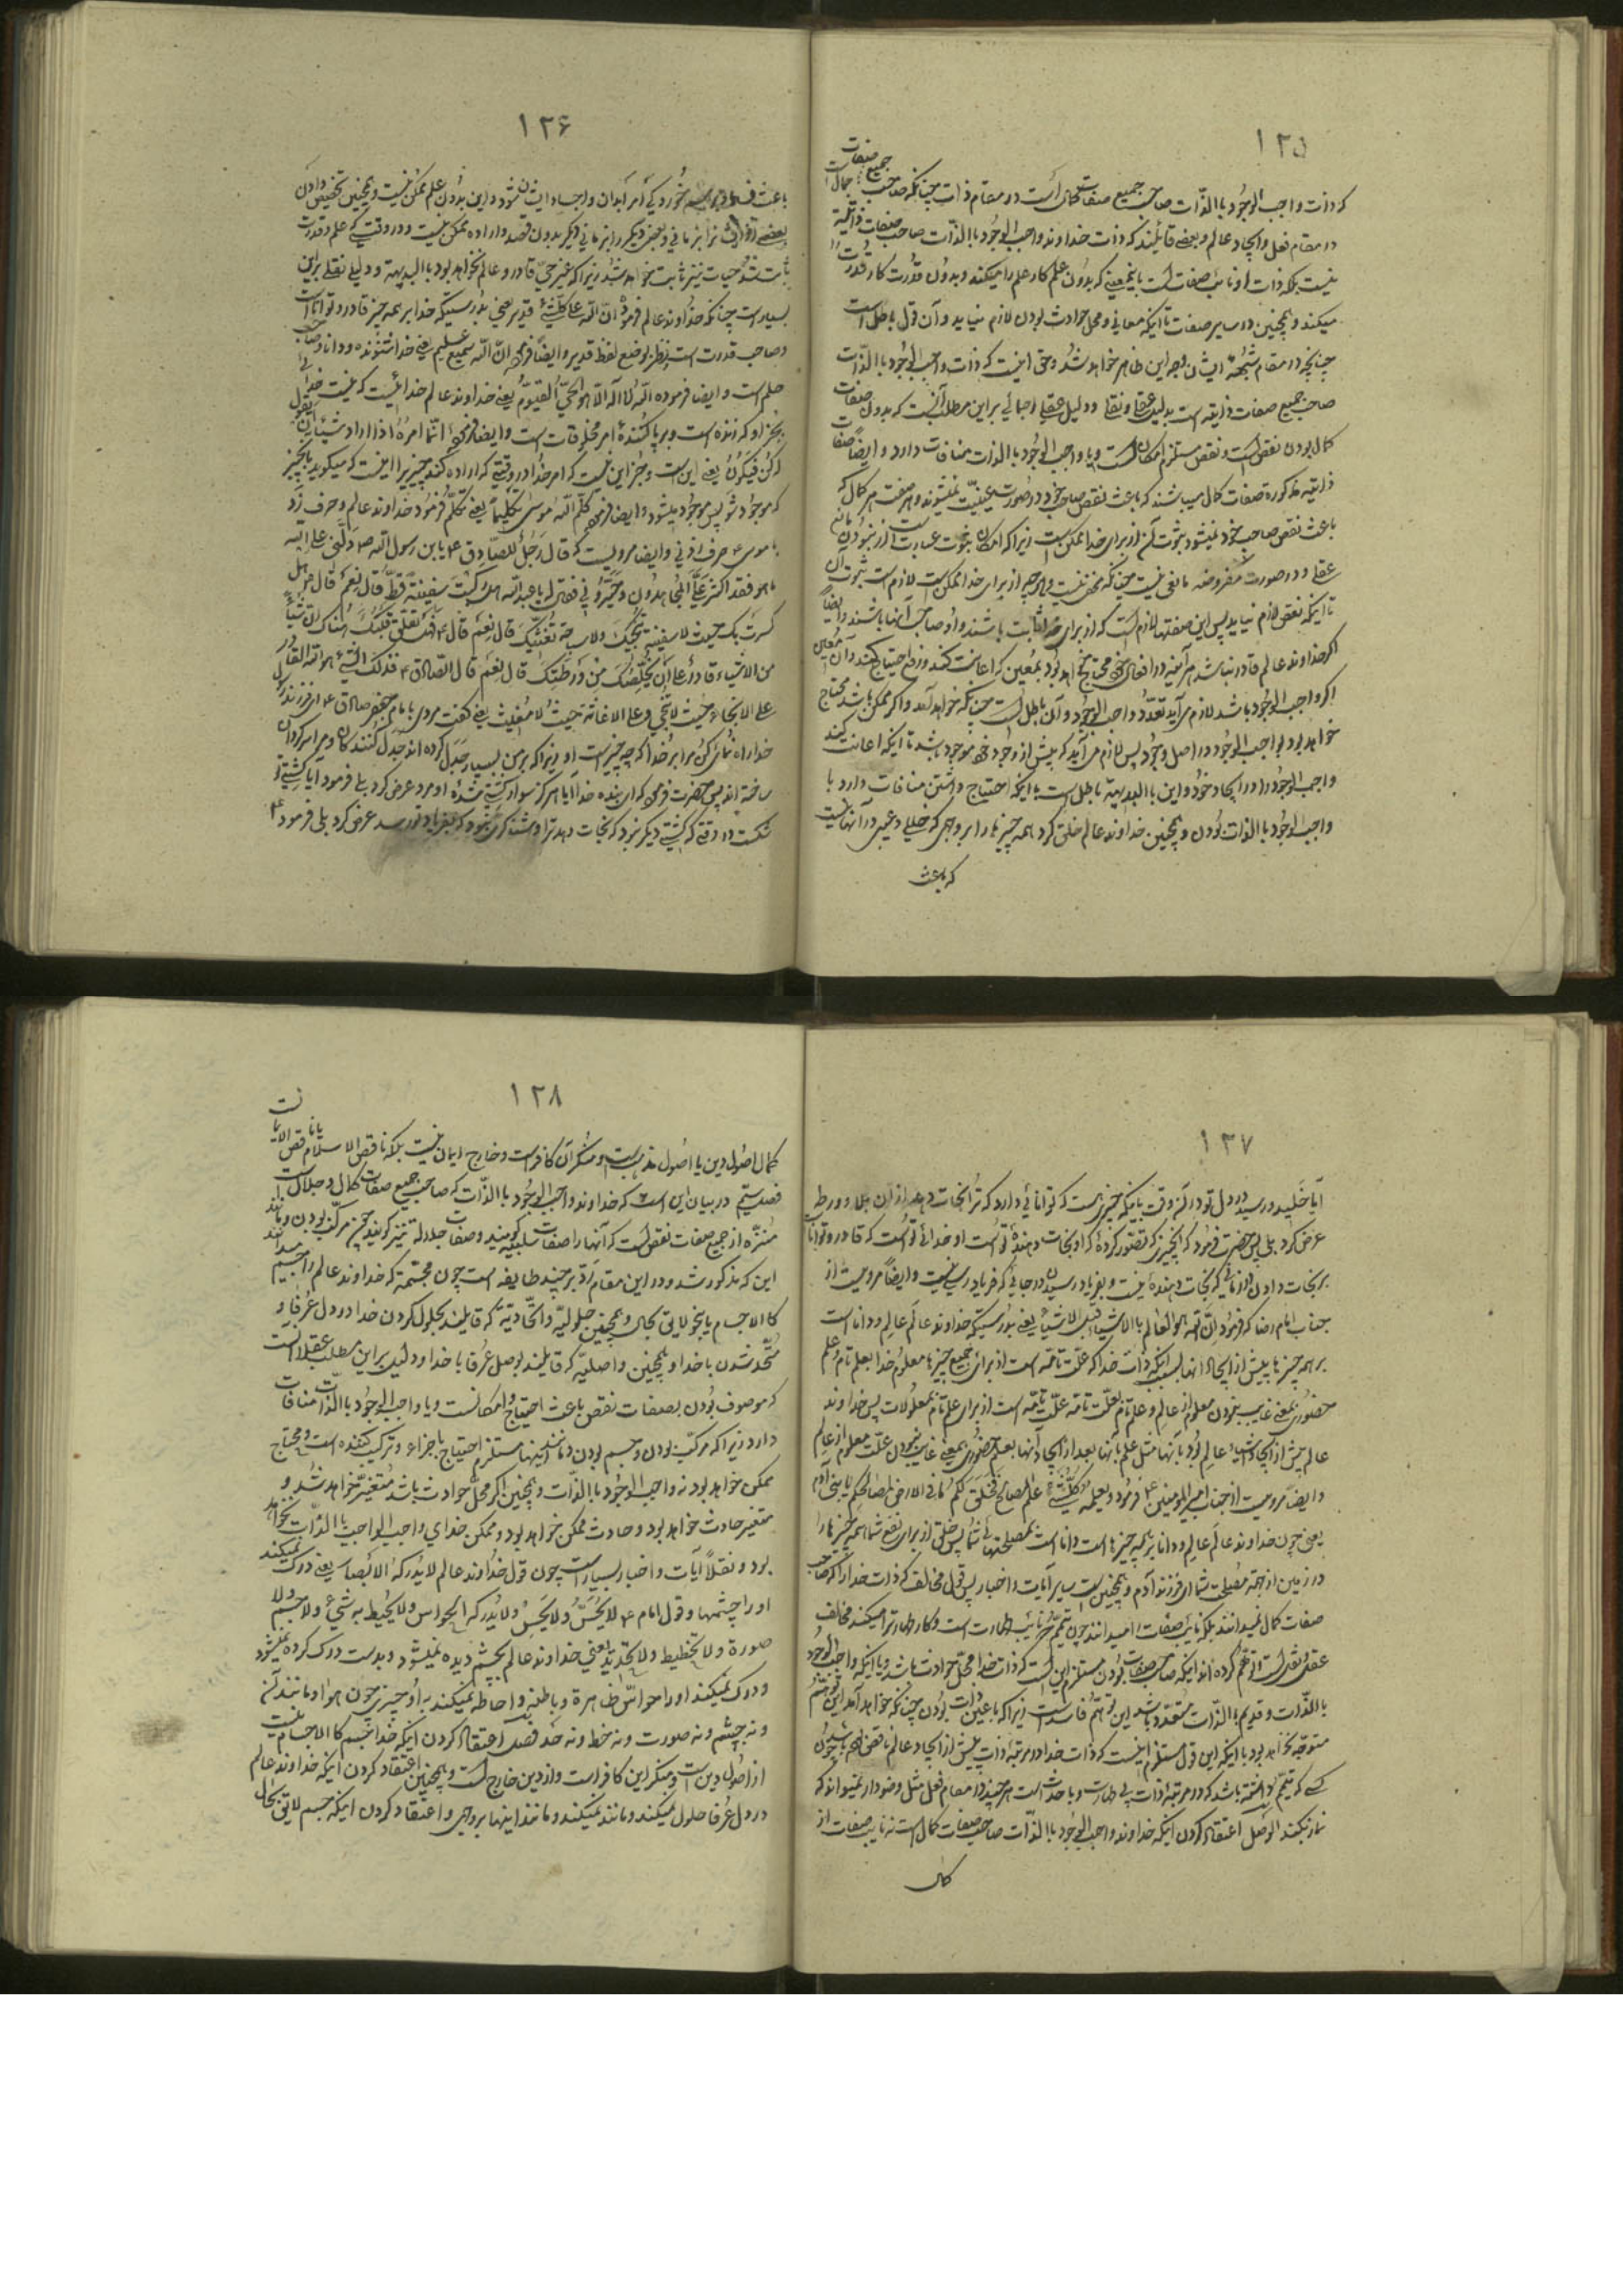 ١٢٥
که ذات واجب الوجود باالذّات صاحب جمیع صفات کمال است در مقام ذات چنانکه صاحب جمیع صفات جمال است
در مقام فعل و ایجاد عالم و بعضی قائلند که ذات خداوند واجب الوجود باالذّات صاحب صفات ذاتیّه
نیست بلکه ذات او نائب صفات است باینمعنی که بدون علم کار علم را میکند و بدون قدرت کار قدرت را
میکند و همچنین در سایر صفات تا اینکه معانی و محل حوادث بودن لازم نیاید و آن قول باطل است
چنانچه در مقام شبهه ایشان وجه این ظاهر خواهد شد و حق اینست که ذات واجب الوجود باالذّات
صاحب جمیع صفات ذاتیّه است بدلیل عقلی و نقلی و دلیل عقلی اجمالی بر این مطلب آنست که بدون صفات
کمال بودن نقص است و نقص مستلزم امکان است و با واجب الوجود باالذات منافات دارد و ایضاً صفات
ذاتیّه مذکوره صفات کمال میباشند که باعث نقص صاحب خود در صورت عینیّت نمیشوند و هر صفت کمال که
باعث نقص صاحب خود نمیشود ثبوت آن از برای خدا ممکن است زیرا که امکان ثبوت عبارت است از نبودن مانع
عقلی و در صورت مفروضه مانعی نیست چنانکه مخفی نیست و هر چه از برای خدا ممکن است لازم است ثبوت آن
تا اینکه نقص لازم نیاید پس این صفتها لازم است که از برای خدا ثابت باشند و او صاحب آنها باشد و ایضاً
اگر خداوند عالم قادر نباشد هر آینه در افعال خود محتاج خواهد بود بمُعین که اعانت کند و رفع احتیاج کند و آن مُعین
اگر واجب الوجود باشد لازم می‌آید تعدّد واجب الوجود و آن باطل است چنانکه خواهد آمد و اگر ممکن باشد محتاج
خواهد بود بواجب الوجود در اصل وجود پس لازم می‌آید که پیش از وجود خود موجود باشد تا اینکه اعانت کند
واجب الوجود را در ایجاد خود و این باالبدیهة باطل است با اینکه احتیاج داشتن منافات دارد با
واجب الوجود باالذات بودن و همچنین خداوند عالم خلق کرد همه چیزها را بر وجهی که خللی و عیبی در آنها نیست
که باعث
١٢۶
باعث فساد شود و این بدون علم ممکن نیست و همچنین تخصیص دادن
بدون قصد و اراده ممکن نیست و در وقتیکه علم و قدرت
ثابت شد حیات نیز ثابت خواهد شد زیرا که غیر حیّ قادر و عالم نخواهد بود باالبدیهة و دلیل نقلی بر این
بسیار است چنانکه خداوند عالم فرمود انّ الله علی کلّ شئ قدیر یعنی بدرستیکه خدا بر همه چیز قادر و توانا است
و صاحب قدرت است نظر بوضع لفظ قدیر و ایضاً فرمود انّ الله سمیع علیم یعنی خدا شنونده و دانا و صاحب
علم است و ایضا فرموده الله لا اله الّا هو الحیّ القیّوم یعنی خداوند عالم خدائیست که نیست خدائی
بجز او که زنده است و برپا کنندۀ امر مخلوقات است و ایضا فرمود انّما امره اذا اراد شیئا ان یقول
له کن فیکون یعنی این است و جز این نیست که امر خدا در وقتی که اراده کند چیزیرا اینست که میگوید بآنچیز
که موجود شو پس موجود میشود و ایضا فرمود کلّم الله موسی تکلیماً یعنی تکلّم فرمود خداوند عالم و حرف زد
با موسی ع حرف زدنی و ایضا مرویست که قال رجل للصّادق ع یابن رسول الله ص دلّنی علی الله
ما هو فقد اکثر علیّ المجادلون و حیّرونی فقال له یا عبدالله هل رکبت سفینة قطّ قال نعم قال هل
کسرت بک حیث لا سفینة تنجیک ولا سباحة تغنیک قال نعم قال ع فهل تعلّق قلبک هناک انّ شیئاً
من الاشیاء قادر علی ان یخلّصک من ورطتک قال نعم قال الصّادق ع فذلک الشّئ هو الله القادر
علی الانجاء حیث لا منجی و علی الاغاثة حیث لا مغیث یعنی گفت مردی بامام جعفر صادق ع ای فرزند رسول
خدا راه نمائی کن مرا بر خدا که چه چیز است او زیرا که بر من بسیار جدل کرده اند جدل کنندگان و مرا سرگردان
ساخته اند پس حضرت فرمود که ای بنده خدا آیا هرگز سوار کشتی شدۀ او مرد عرض کرد بلی فرمود آیا کشتی تو
شکست در وقتیکه کشتی دیگر نبود که نجات دهد ترا و شناگری نبود که بفریاد تو رسد عرض کرد بلی فرمود ع
١٢٧
آیا خلید و رسید در دل تو در آنوقت باینکه چیزی هست که توانائی دارد که ترا نجات دهد از آن بلا و ورطه
عرض کرد بلی پس حضرت فرمود که آنچیزیکه تصوّر کردۀ که او نجات دهندۀ تو است او خدائی تو است که قادر و توانا است
بر نجات دادن در جائی که نجات دهندۀ نیست و بفریاد رسیدن در جائی که فریاد رسی نیست و ایضاً مرویست از
جناب امام رضا که فرمود انّ الله هو العالم باالاشیاء قبل الاشیاء یعنی بدرستیکه خداوند عالَم عالِم و دانا است
بر همه چیزها پیش از ایجاد آنها بسبب اینکه ذات خدا که علّت تامّه است از برای جمیع چیزها معلوم خدا بعلم تام و علم
حضوری بمعنی غایب نبودن معلوم از عالم و علم تام بعلّت تامّه علّت تامّه است از برای علم تام بمعلولات پس خداوند
عالم پیش از ایجاد اشیاء عالم بود بآنها مثل علم بآنها بعد از ایجاد آنها بعلم حضوری بمعنی غایب نبودن علّت معلوم از عالم
و ایضا مرویست از جناب امیرالمومنین ع فرمود و بعلمه بکلّ شئ علم المصالح فخلق لکم ما فی الارض لمصالحکم یا بنی آدم
یعنی چون خداوند عالَم عالِم و دانا بر همه چیزها است دانا است بمصلحتهای شما پس خلق از برای نفع شما همه چیزها را
در زمین از جهة مصلحت شما ای فرزند آدم و همچنین است سایر آیات و اخبار پس قول مخالف که ذات خدا را که صاحب
صفات کمال نمیدانند بلکه نایب صفات میدانند چون تیمّم که نایب طهارت است و کار طهارت را میکند مخالف
عقل و نقل است از زعم کرده اند اینکه صاحب صفات بودن مستلزم این است که ذات خدا محل حوادث باشد و یا اینکه واجب الوجود
باالذّات و قدیم باالذّات متعدّد باشد این توهّم فاسد است زیرا که با عین ذات بودن چنانکه خواهد آمد این توهّم
متوجّه نخواهد بود با اینکه این قول مستلزم اینست که ذات خدا در مرتبۀ ذات پیش از ایجاد عالم ناقص باشد چون
کسی که تیمّم داشته باشد که در مرتبۀ ذات بی طهارت و با حدث است هر چند در مقام فعل مثل وضو دار میتواند که
نماز بکند الوصل اعتقاد کردن اینکه خداوند واجب الوجود باالذّات صاحب صفات کمال است نه نایب صفات از
کمال
١٢٨
کمال اصول دین یا اصول مذهب است و منکر آن کافر است و خارج ایمان نیست بلکه ناقص الاسلام یا ناقص الایمانست
فصل بیستم در بیان این است که خداوند واجب الوجود باالذّات که صاحب جمیع صفات کمال و جلال است
منزّه از جمیع صفات نقص است که آنها را صفات سلبیّه گویند و صفات جلاله نیز گویند چون مرکّب بودن و مانند
این که مذکور شد و در این مقام ردّ بر چند طایفه است چون مجسّمة که خداوند عالم را جسم میدانند
کالاجسام یا بنحو لایق بحال و همچنین حلولیّه و اتّحادیّة که قایلند بحلول کردن خدا در دل عُرفا و
متّحد شدن با خدا و همچنین واصلیّه که قایلند بوصل عُرفا با خدا و دلیل بر این مطلب عقلا آنست
که موصوف بودن بصفات نقص باعث احتیاج و امکانست و با واجب الوجود باالذّات منافات
دارد زیرا که مرکّب بودن و جسم بودن و مانند اینها مستلزم احتیاج باجزاء و ترکیب کننده است و محتاج
ممکن خواهد بود نه واجب الوجود باالذّات و همچنین اگر محلّ حوادث باشد متغیّر خواهد شد و
متغیّر حادث خواهد بود و حادث ممکن خواهد بود و ممکن خدای واجب الواجب باالذّات نخواهد
بود و نقلاً آیات و اخبار بسیار است چون قول خداوند عالم لا یدرکه الابصار یعنی درک نمیکند
او را چشمها و قول امام ع لا یحسّ ولا یجسّ ولا یدرکه الحواس ولا یحیط به شیء ولا جسم ولا
صورة ولا تخطیط ولا تحدید یعنی خداوند عالم بچشم دیده نمیشود و بدست درک کرده نمیشود
و درک نمیکند او را حواسّ ظاهرة و باطنة و احاطه نمیکند به او چیزی چون هوا و مانند آن
و نه جسم و نه صورت و نه خط و نه حد فصل اعتقاد کردن اینکه خدا جسم کالاجسام نیست
از اصول دین است و منکر این کافر است و از دین خارج است و همچنین اعتقاد کردن اینکه خداوند عالم
در دل عُرفا حلول نمیکند و مانند نمیکند و مانند اینها بر وجهی و اعتقاد کردن اینکه جسم لایق بحال